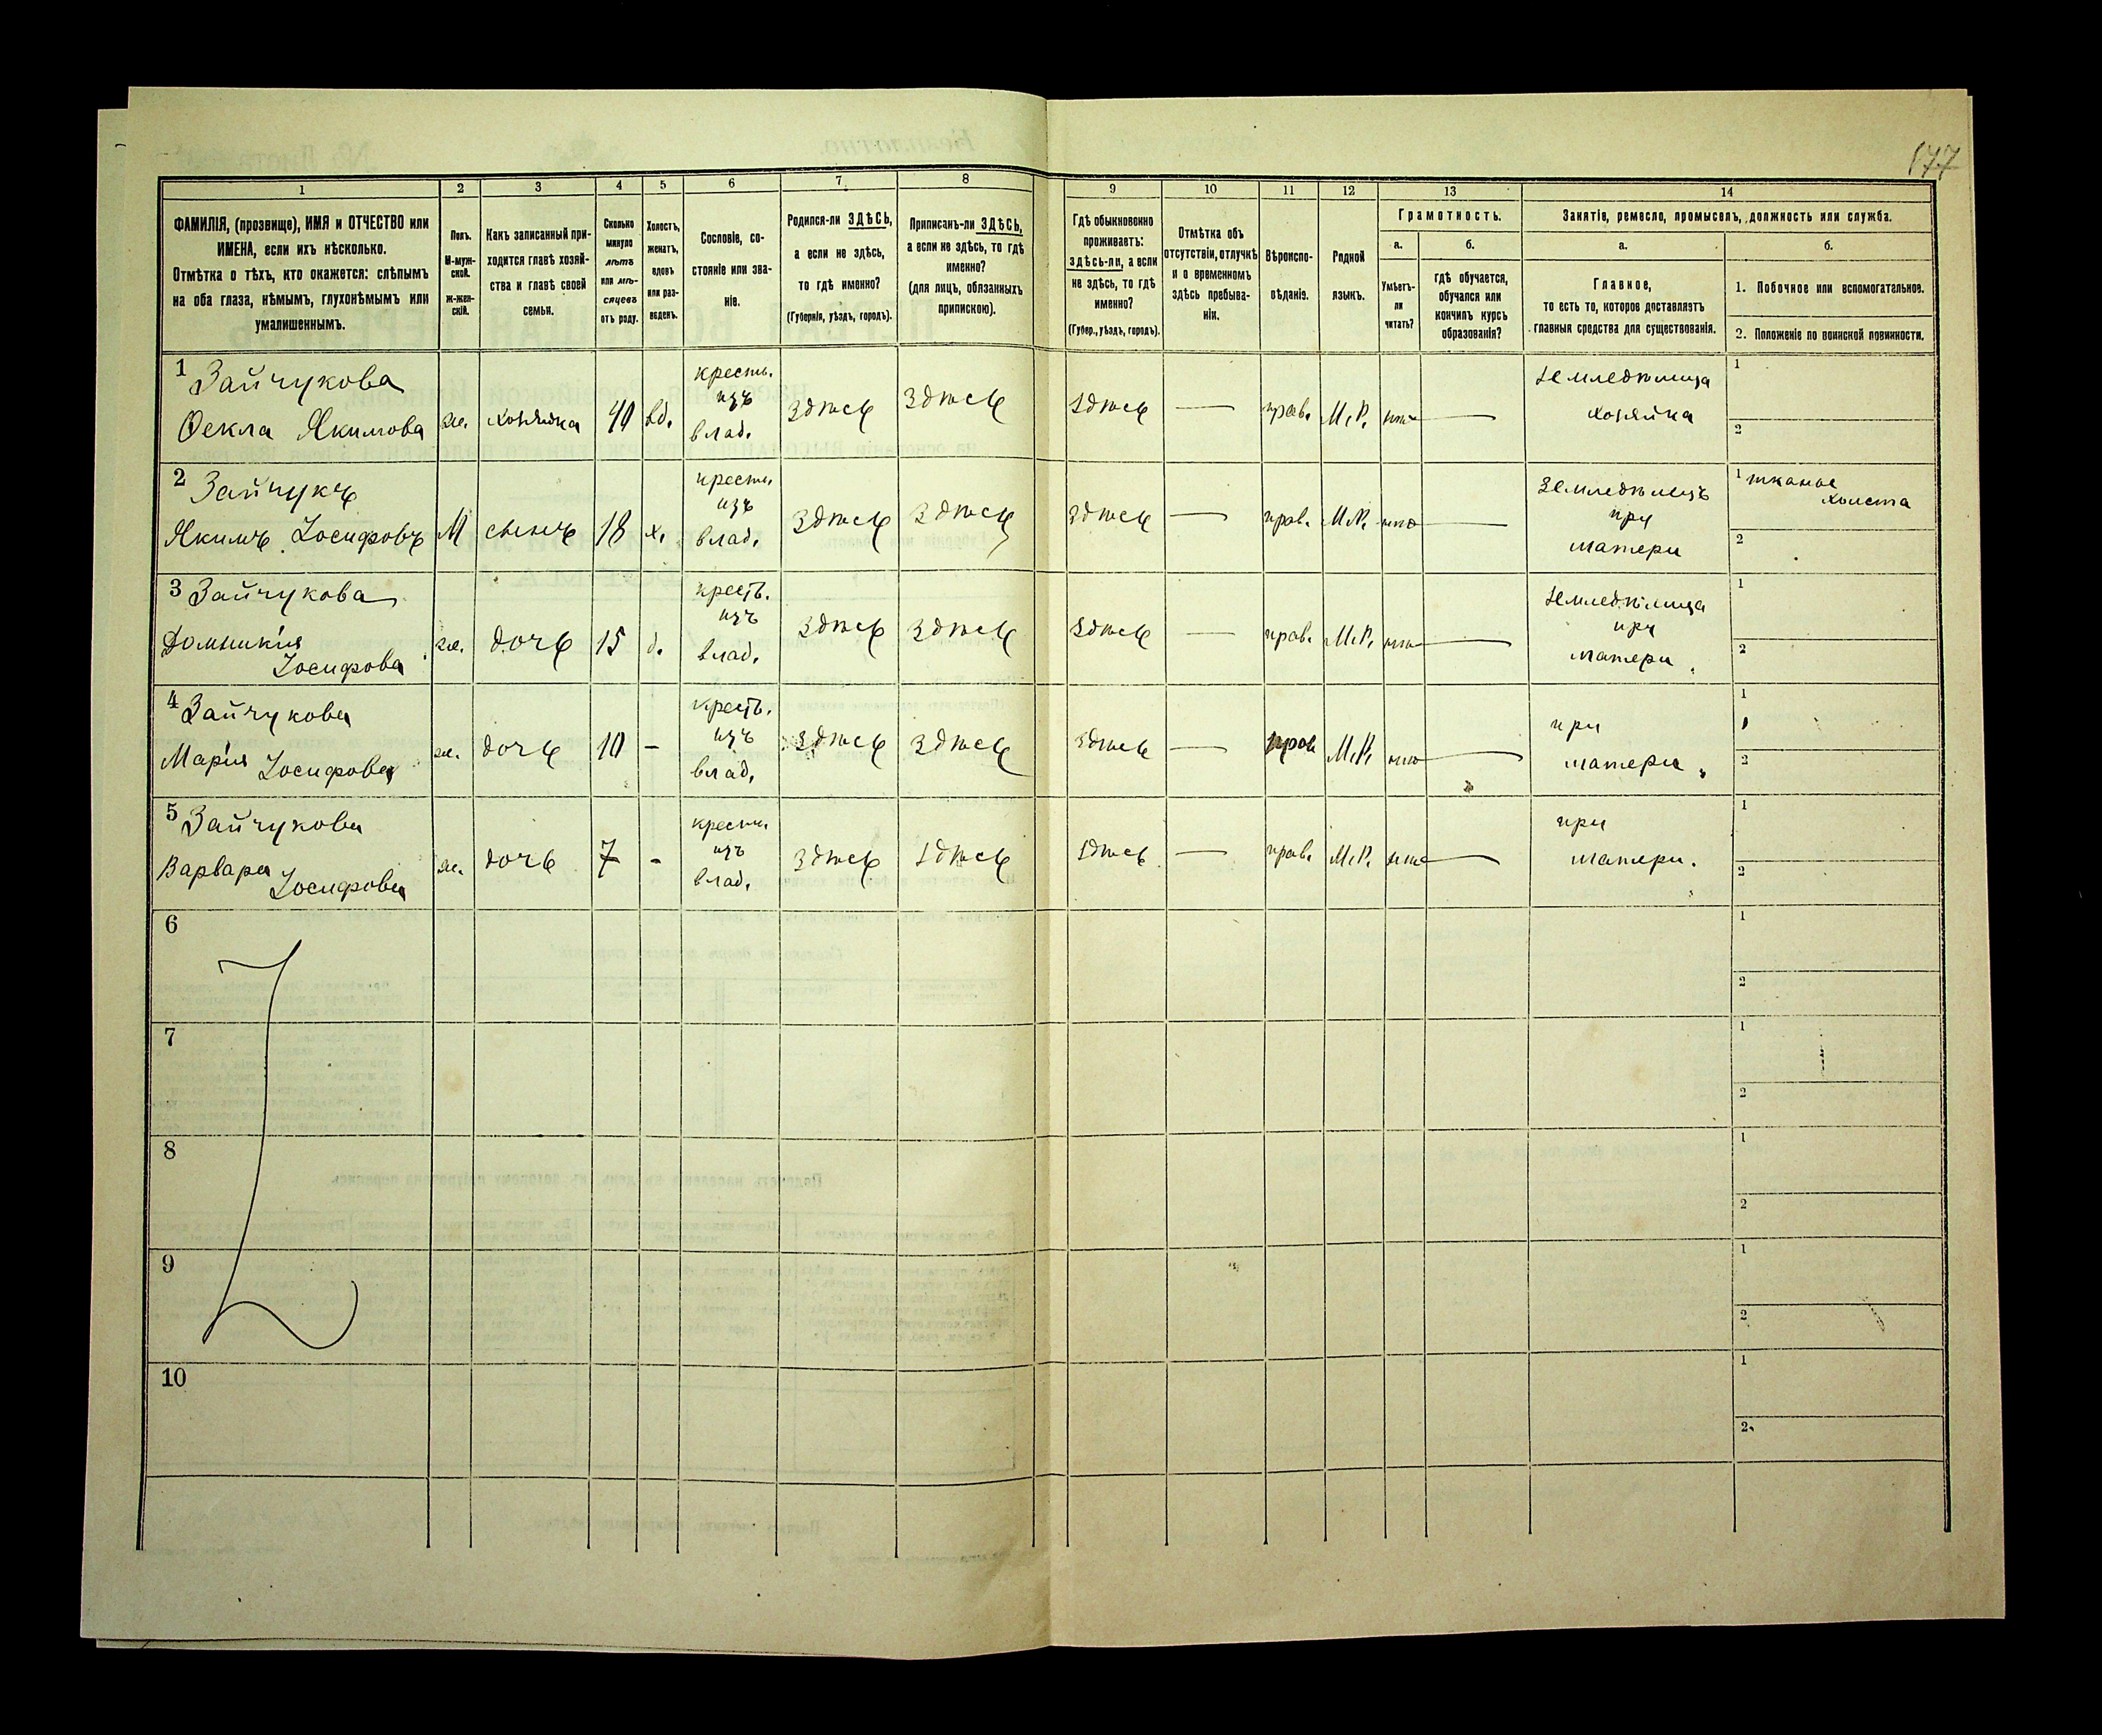 177
1
2
3
4
5
6
7
8
9
10
11
12
13
14
ФАМИЛІЯ, (прозвище), ИМЯ и ОТЧЕСТВО или
ИМЕНА, если ихъ нѣсколько.
Отмѣтка о тѣхъ, кто окажется: слѣпымъ
на оба глаза, нѣмымъ, глухонѣмымъ или
умалишеннымъ.
Полъ.
М-муж-
ской.
ж-жен-
скій.
Какъ записанный при-
ходится главѣ хозяй-
ства и главѣ своей
семьи.
Сколько
минуло
лѣтъ
или мѣ-
сяцевъ
отъ роду.
Холостъ,
женатъ,
вдовъ
или раз-
веденъ.
Сословіе, со-
стояніе или зва-
ніе.
Родился-ли ЗДѢСЬ,
а если не здѣсь,
то гдѣ именно?
(Губернія, уѣздъ, городъ).
Приписанъ-ли ЗДѢСЬ,
а если не здѣсь, то гдѣ
именно?
(для лицъ, обязанныхъ
припискою).
Гдѣ обыкновенно
проживаетъ:
здѣсь-ли, а если
не здѣсь, то гдѣ
именно?
(Губер., уѣздъ, городъ).
Отмѣтка объ
отсутствіи, отлучкѣ
и о временномъ
здѣсь пребыва-
ніи.
Вѣроиспо-
вѣданіе.
Родной
языкъ.
Грамотность.
а.
б.
Умѣетъ-
ли
читать?
гдѣ обучается,
обучался или
кончилъ курсъ
образованія?
Занятіе, ремесло, промыселъ, должность или служба.
а.
б.
Главное,
то есть то, которое доставляетъ
главныя средства для существованія.
1. Побочное или вспомогательное.
2. Положеніе по воинской повинности.
1 Зайчукова
Ѳекла Якимова
же.
хозяйка
40
вд.
кресть.
изъ
влад.
здѣсь
здѣсь
здѣсь
—
прав.
М.Р.
нѣтъ
—
земледѣлица
хозяйка
1
2
2 Зайчукъ
Якимъ Іосифовъ
М
сынъ
18
х.
кресть.
изъ
влад.
здѣсь
здѣсь
здѣсь
—
прав.
М.Р.
нѣтъ
—
земледѣлецъ
при
матери
1 тканье
холста
2
3 Зайчукова
Домникія
Іосифова
же.
дочь
15
д.
кресть.
изъ
влад.
здѣсь
здѣсь
здѣсь
—
прав.
М.Р.
нѣтъ
—
земледѣлица
при
матери
1
2
4 Зайчукова
Марія Іосифова
же.
дочь
10
-
кресть.
изъ
влад.
здѣсь
здѣсь
здѣсь
—
прав
М.Р.
нѣтъ
—
при
матери
1
2
5 Зайчукова
Варвара
Іосифова
же.
дочь
7
-
кресть.
изъ
влад.
здѣсь
здѣсь
здѣсь
—
прав.
М.Р.
нѣтъ
—
при
матери.
1
2
6
1
2
7
1
2
8
1
2
9
1
2
10
1
2